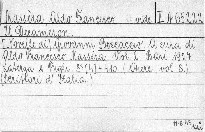 Massèra Aldo Francesco vide I N 65222
Il Decameron.
[Novelle di] Giovanni Boccaccio. A cura di
Aldo Francesco Massèra Vol. I. Bari 1927
Laterza & Figli 8° (4) - 410 (Opere vol.
(Scrittori d'Italia.)